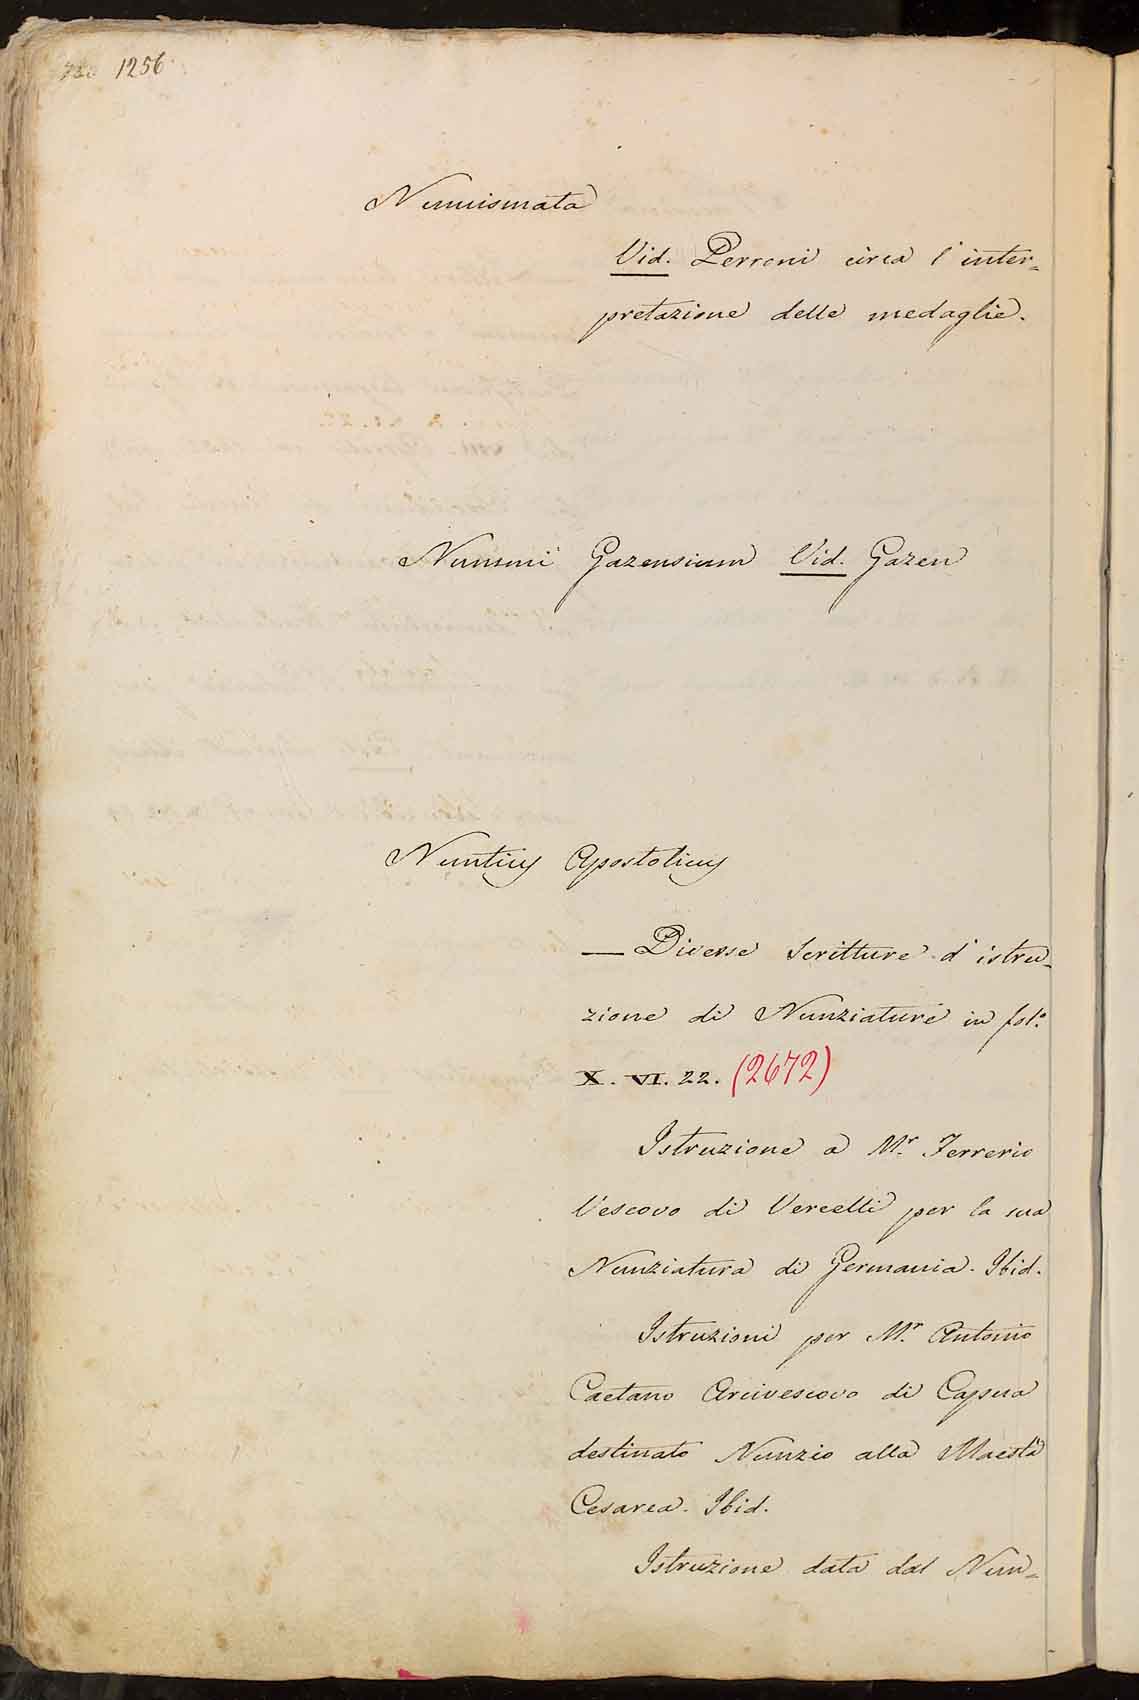 1256
Numismata
Vid. Perroni circa l'inter=
pretazione delle medaglie.
Nummi Gazensium Vid. Gazen
Nuntius Apostolicus
— Diverse Scritture d'istru=
zione di Nunziature in fol.º
X. VI. 22. (2672)
Istruzione a M.r Ferrerio
Vescovo di Vercelli per la sua
Nunziatura di Germania. Ibid.
Istruzioni per M.r Antonio
Caetano Arcivescovo di Capua
destinato Nunzio alla Maestà
Cesarea. Ibid.
Istruzione data dal Nun=